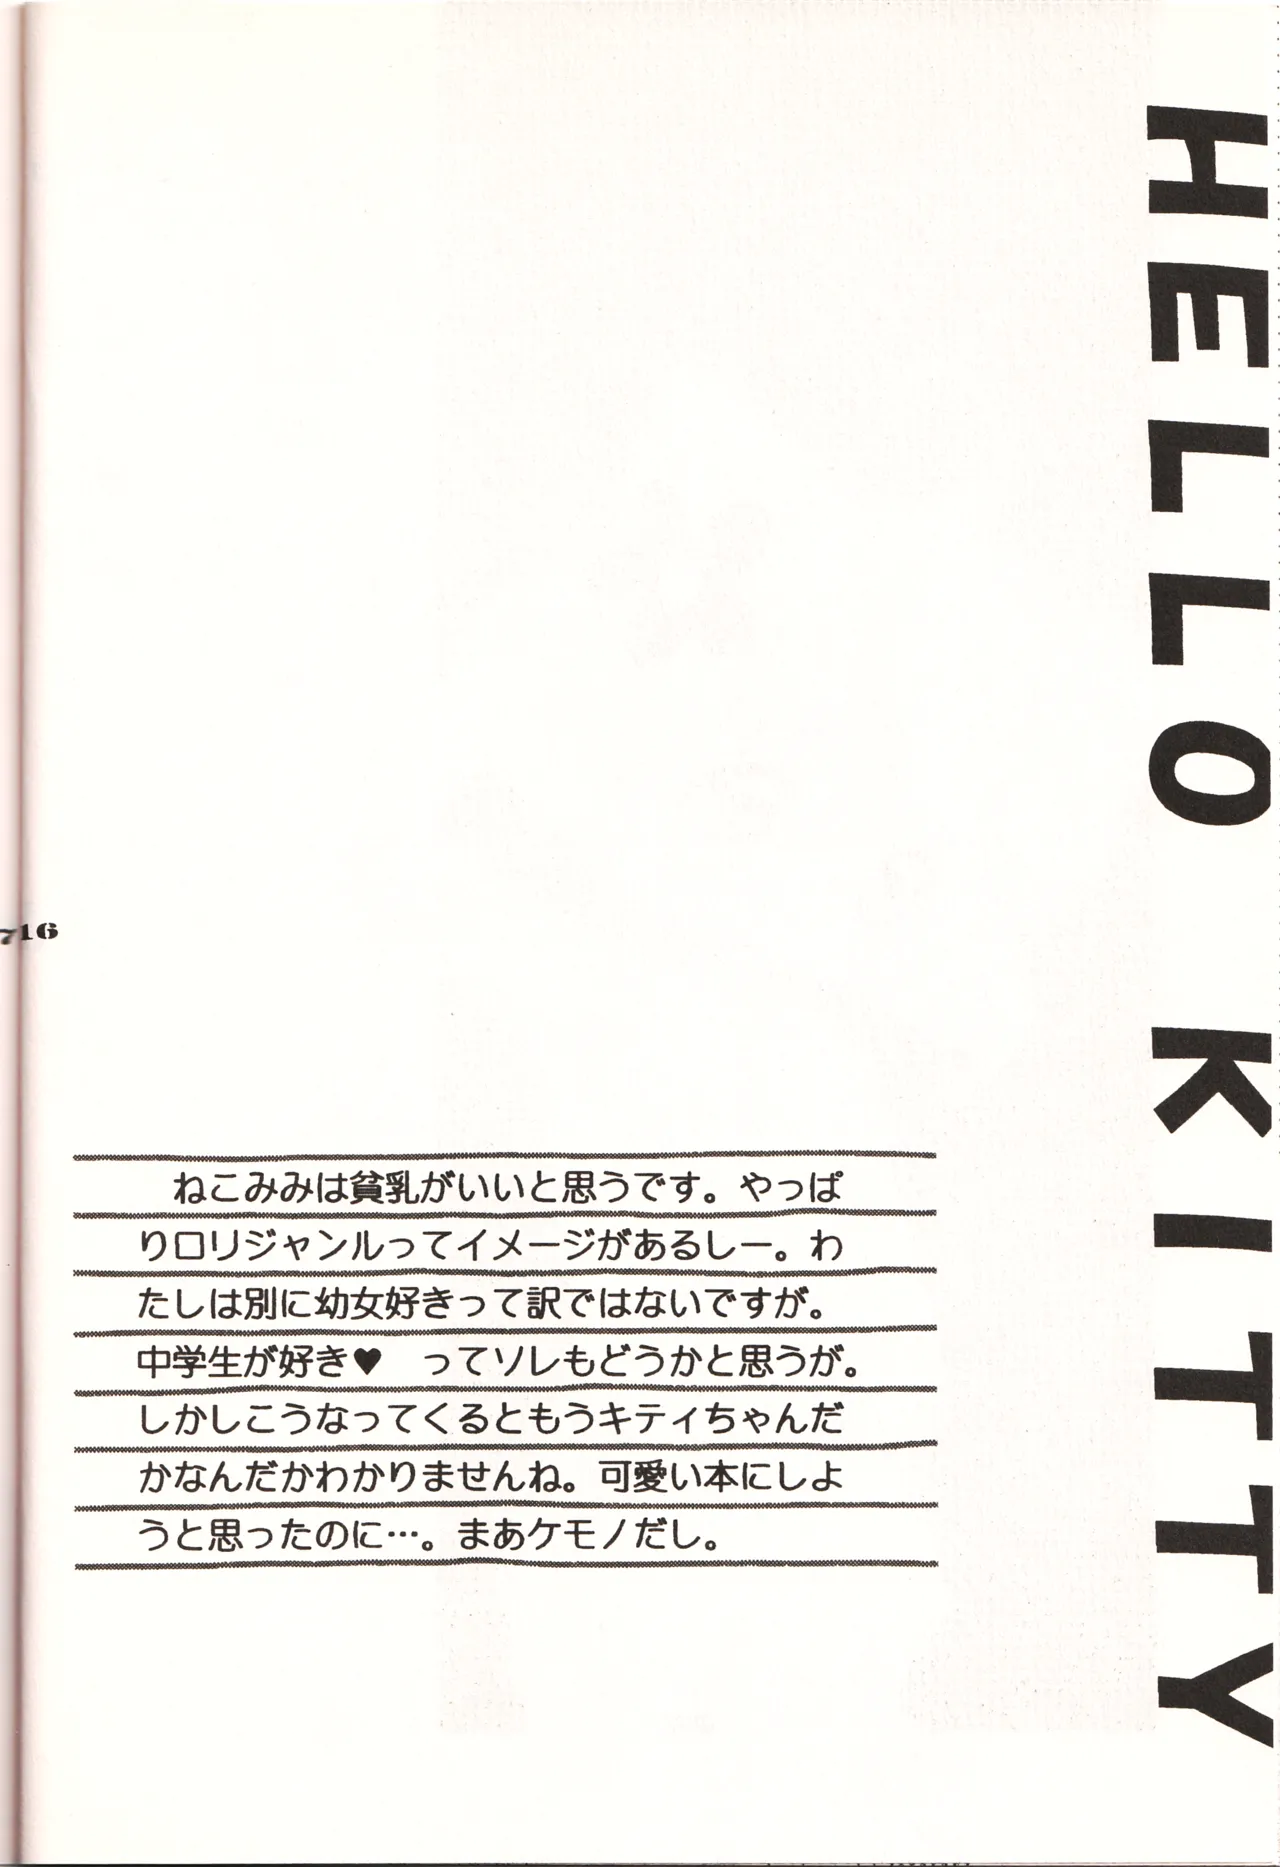 HELLO KITTY
ねこみみは貧乳がいいと思うです。やっぱ
りロリジャンルってイメージがあるしー。わ
たしは別に幼女好きって訳ではないですが。
中学生が好き♥　ってソレもどうかと思うが。
しかしこうなってくるともうキティちゃんだ
かなんだかわかりませんね。可愛い本にしよ
うと思ったのに…。まあケモノだし。
16